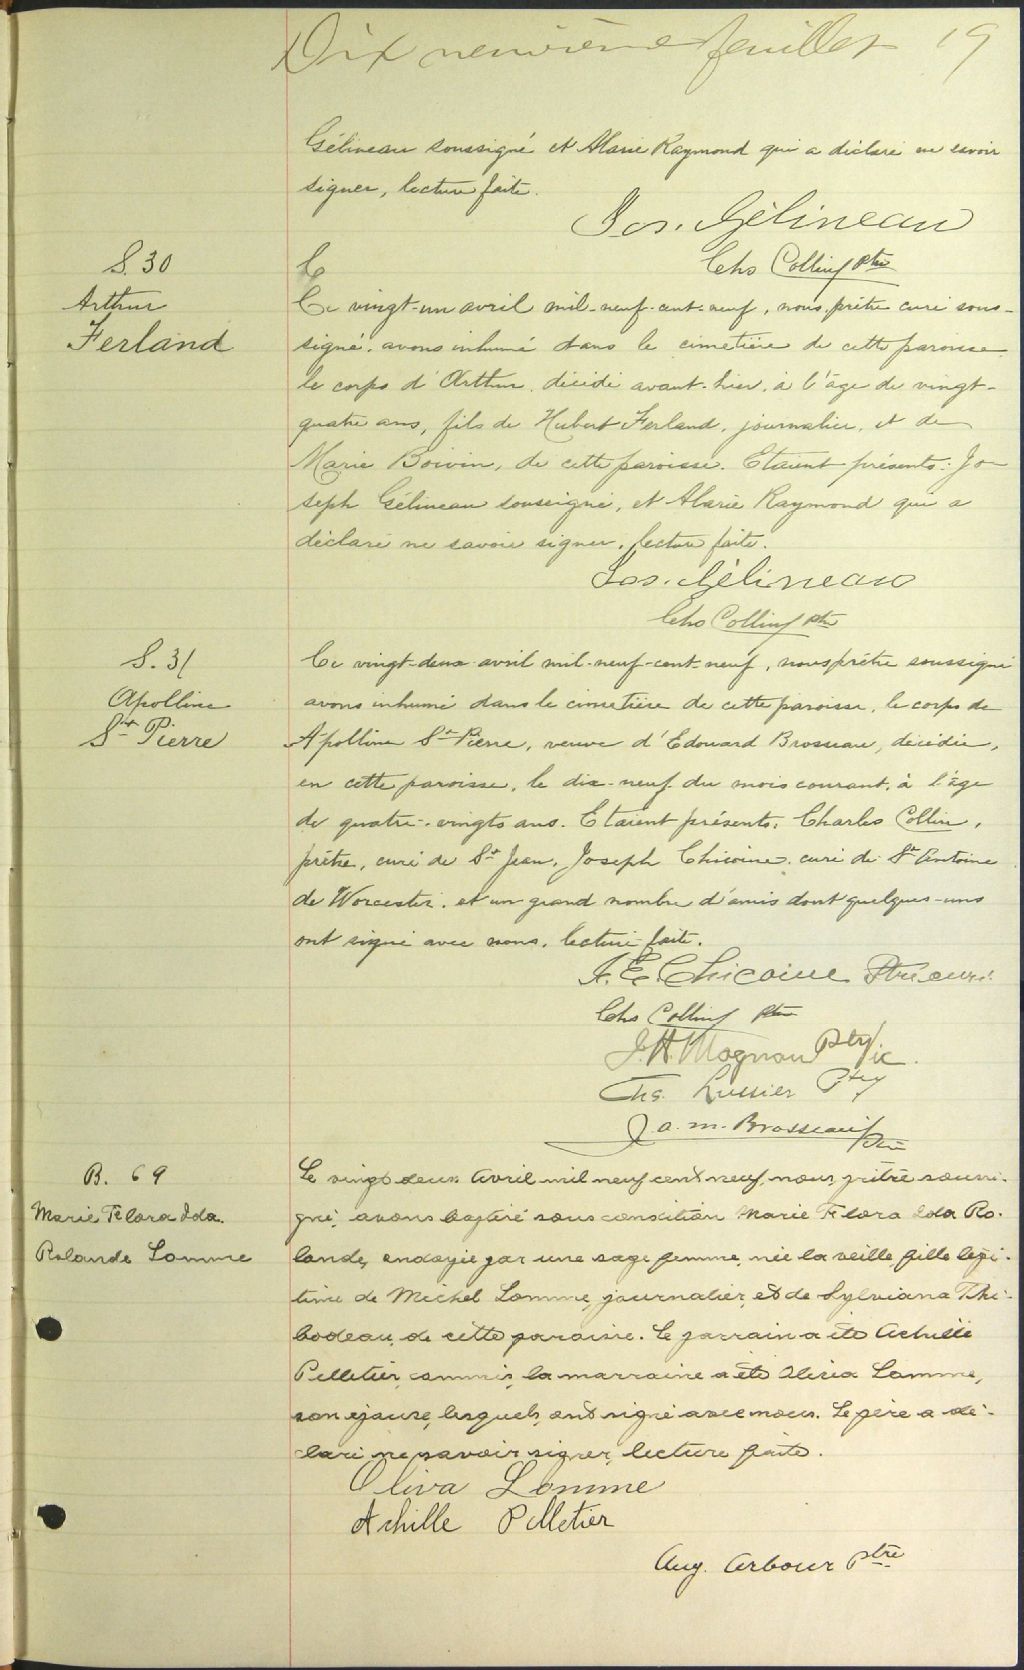 Dix neuvième feuillet 19
Gélineau soussigné et Marie Raymond qui a déclaré ne savoir
signer, lecture faite.
Jos. Gélineau
Chs Collin Ptre
S. 30
Arthur
Ferland
C
Ce vingt-un avril mil-neuf-cent-neuf, nous, prêtre curé sous-
signé, avons inhumé dans le cimetière de cette paroisse
le corps d'Arthur, décédé avant-hier, à l'âge de vingt-
quatre ans, fils de Hubert Ferland, journalier, et de
Marie Boivin, de cette paroisse. Etaient présents: Jo-
seph Gélineau soussigné, et Marie Raymond qui a
déclaré ne savoir signer, lecture faite.
Jos. Gélineau
Chs Collin Ptre
S. 31
Apolline
St Pierre
Ce vingt-deux avril mil-neuf-cent-neuf, nous prêtre soussigné
avons inhumé dans le cimetière de cette paroisse, le corps de
Apolline St Pierre, veuve d'Edouard Brosseau, décédée,
en cette paroisse, le dix-neuf du mois courant, à l'âge
de quatre-vingts ans. Etaient présents: Charles Collin,
prêtre, curé de St Jean, Joseph Chicoine, curé de St Antoine
de Worcester, et un grand nombre d'amis dont quelques-uns
ont signé avec nous, lecture faite.
J. E. Chicoine Ptre curé
Chs Collin Ptre
J. H. Magnan Ptre Vic.
Chs. Lussier Ptre
J. a. m. Brosseau Ptre
B. 69
Marie Flora Ida
Rolande Lomme
Le vingt deux avril mil neuf cent neuf, nous, prêtre soussi-
gné, avons baptisé sous condition Marie Flora Ida Ro-
lande, ondoyée par une sage femme, née la veille, fille légi-
time de Michel Lomme, journalier, et de Sylviana Thi-
bodeau, de cette paroisse. Le parrain a été Achille
Pelletier, commis, la marraine a été Lomme,
son épouse, lesquels ont signé avec nous. Le père a dé-
claré ne savoir signer, lecture faite.
Oliva Lomme
Achille Pelletier
Aug. Arbour Ptre